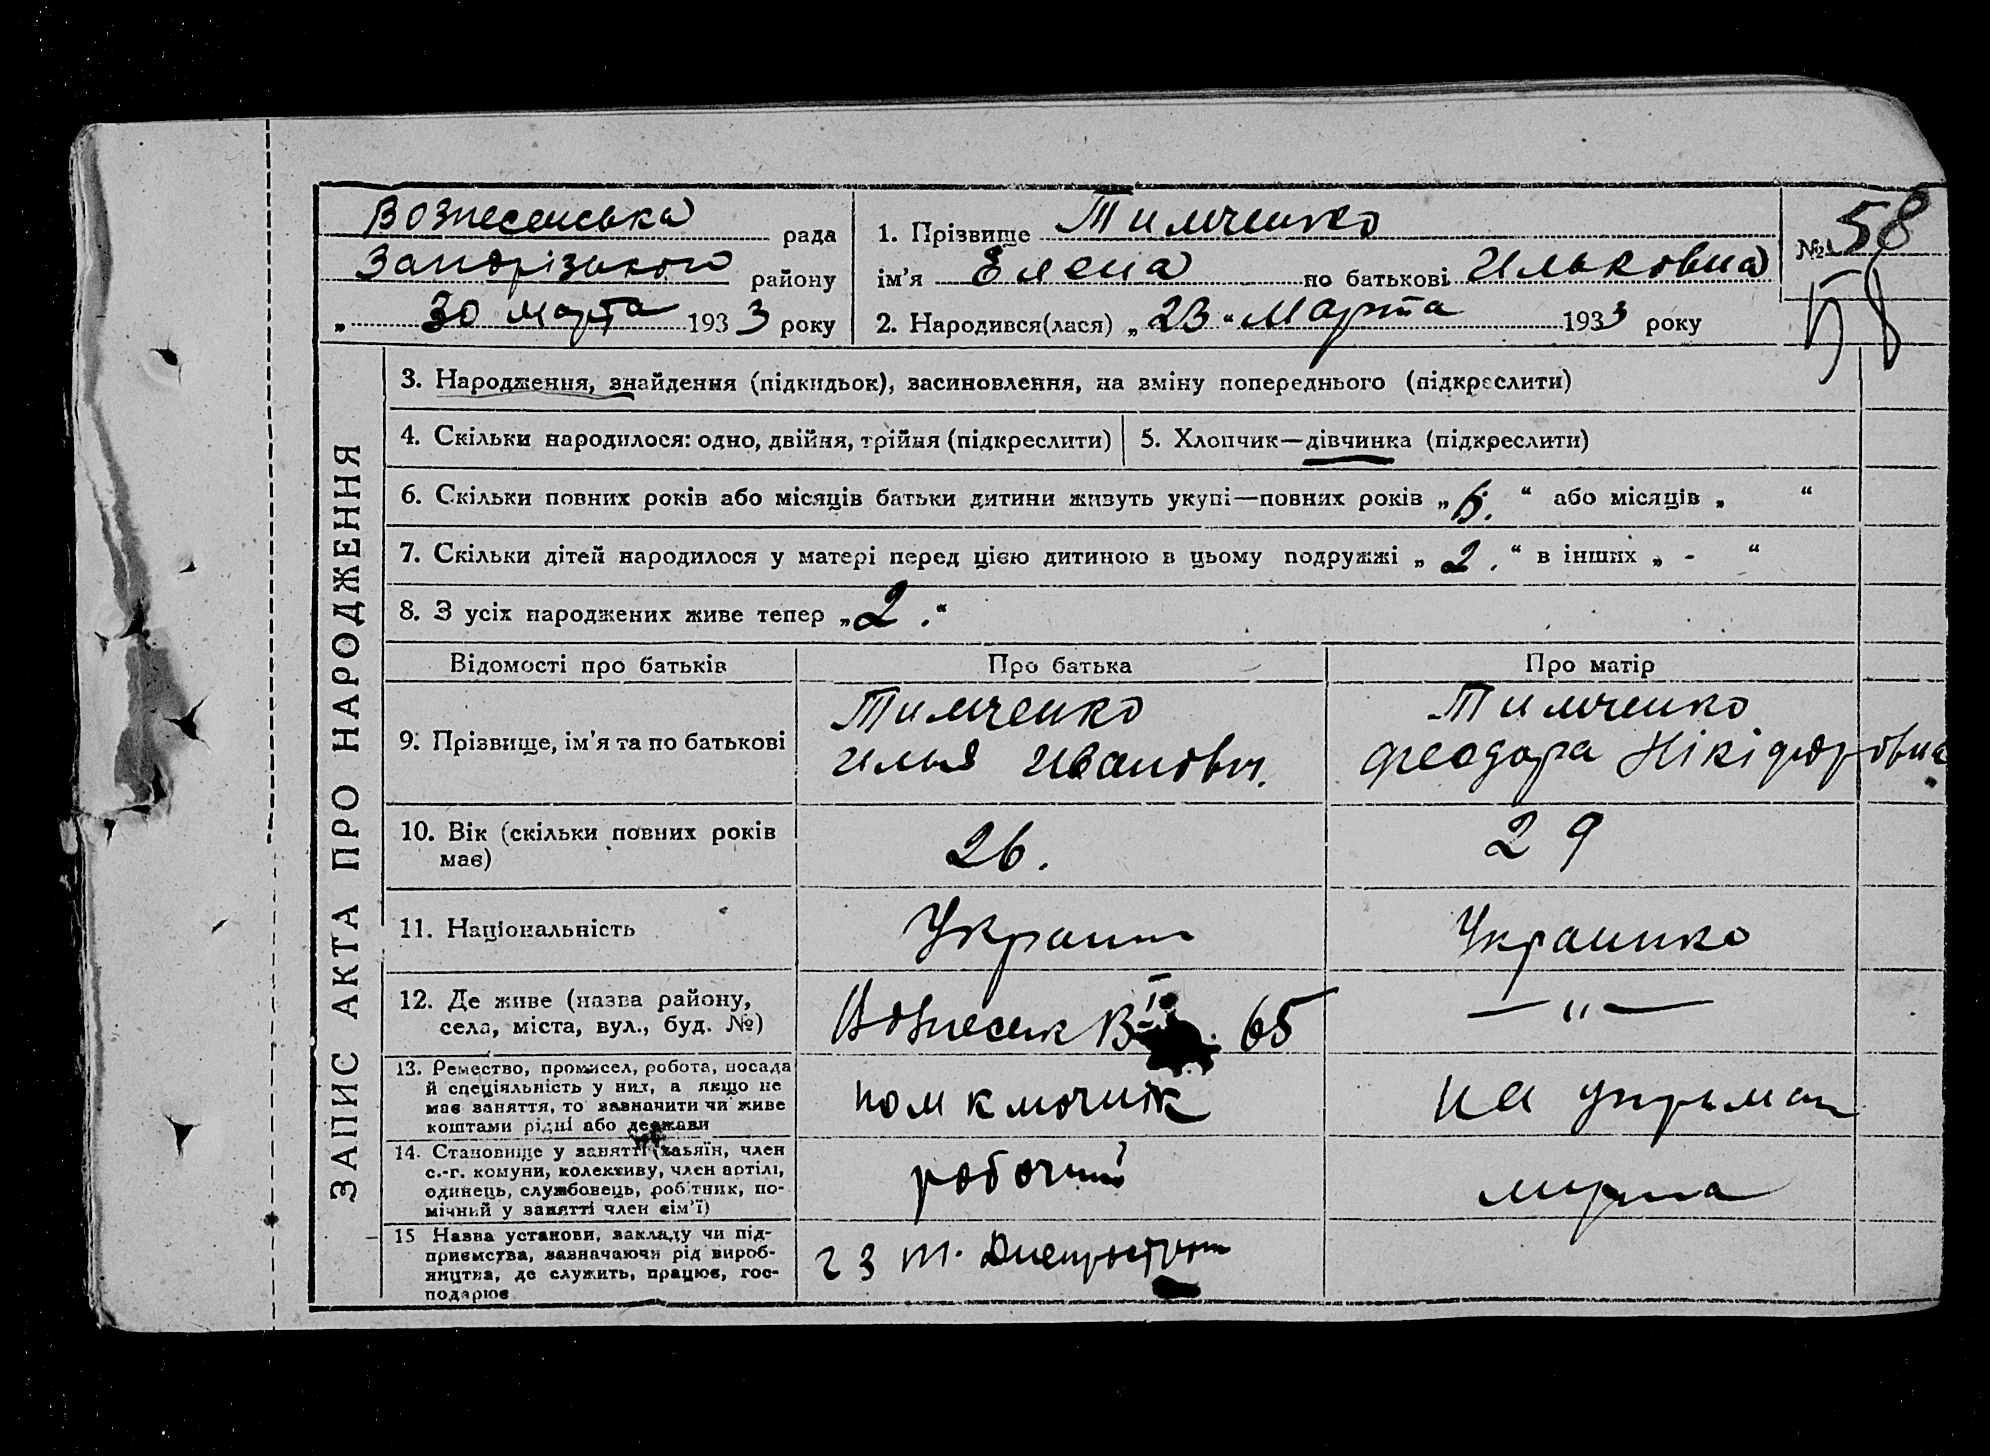 Вознесенська рада
Запорізького району
„ 30 марта 1933 року
1. Прізвище Тимченко
ім’я Елена по батькові Ильковна
2. Народився(лася) „ 23 “ Марта 1933 року
№ 58
58
ЗАПИС АКТА ПРО НАРОДЖЕННЯ
3. Народження, знайдення (підкидьок), засиновлення, на зміну попереднього (підкреслити)
4. Скільки народилося: одно, двійня, трійня (підкреслити)
5. Хлопчик—дівчинка (підкреслити)
6. Скільки повних років або місяців батьки дитини живуть укупі—повних років „ 6. “ або місяців „ “
7. Скільки дітей народилося у матері перед цією дитиною в цьому подружжі „ 2. “ в інших „ - “
8. З усіх народжених живе тепер „ 2. “
Відомості про батьків
Про батька
Про матір
9. Прізвище, ім’я та по батькові
Тимченко
Илья Иванович.
Тимченко
Феодора Нікіфоровна
10. Вік (скільки повних років
має)
26.
29
11. Національність
Украин
Украинко
12. Де живе (назва району,
села, міста, вул., буд. №)
Вознесенк 65
— “ —
13. Ремество, промисел, робота, посада
й спеціяльність у них, а якщо не
має заняття, то зазначити чи живе
коштами рідні або держави
пом ключник
на утриман
14. Становище у занятті (хазяїн, член
с.-г. комуни, колективу, член артілі,
одинець, службовець, робітник, по-
мічний у занятті член сім’ї)
робочий
15 Назва установи, закладу чи під-
приємства, зазначаючи рід вироб-
ництва, де служить, працює, гос-
подарює
Днепрострой